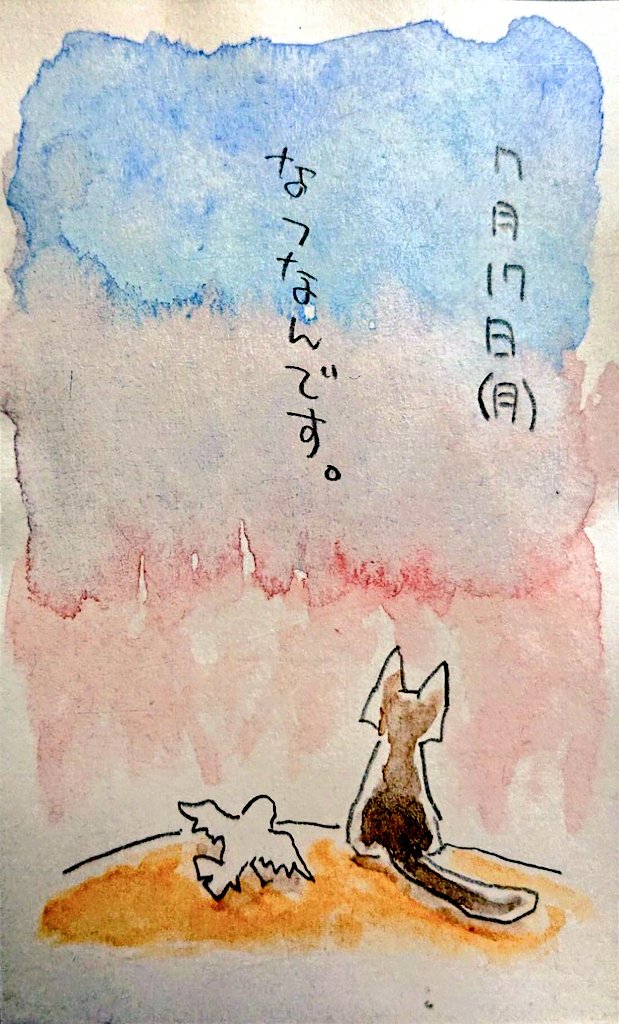 7月17日(月)
なつなんです。